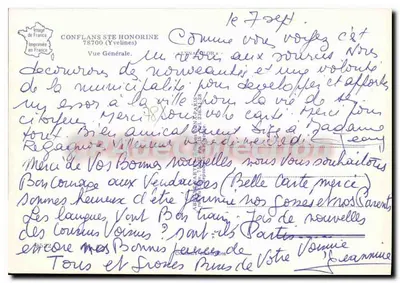 Image de France
Imprimée en France
CONFLANS STE HONORINE
78700 (Yvelines)
Vue Générale.
le 7 sept.
Comme vous voyez c'est
un retour aux sources Nous
découvrons des nouveautés et une volonté
de la municipalité pour développer et apporter
un essor à la ville pour la vie de ses
citoyens Merci pour votre carte Merci pour
tout Bien amicalement à Madame
Jeany
Merci de Vos Bonnes nouvelles nous Vous souhaitons
Bon Courage aux Vendanges (Belle Carte merci)
sommes heureux d'être parmi nos gosses et nos Parents
Les langues Vont Bon train. Pas de nouvelles
des cousins Voisins? sont-ils Partis
encore nos Bonnes pensées de
Tous et Grosses Bises de Votre Voisine
Jeannine